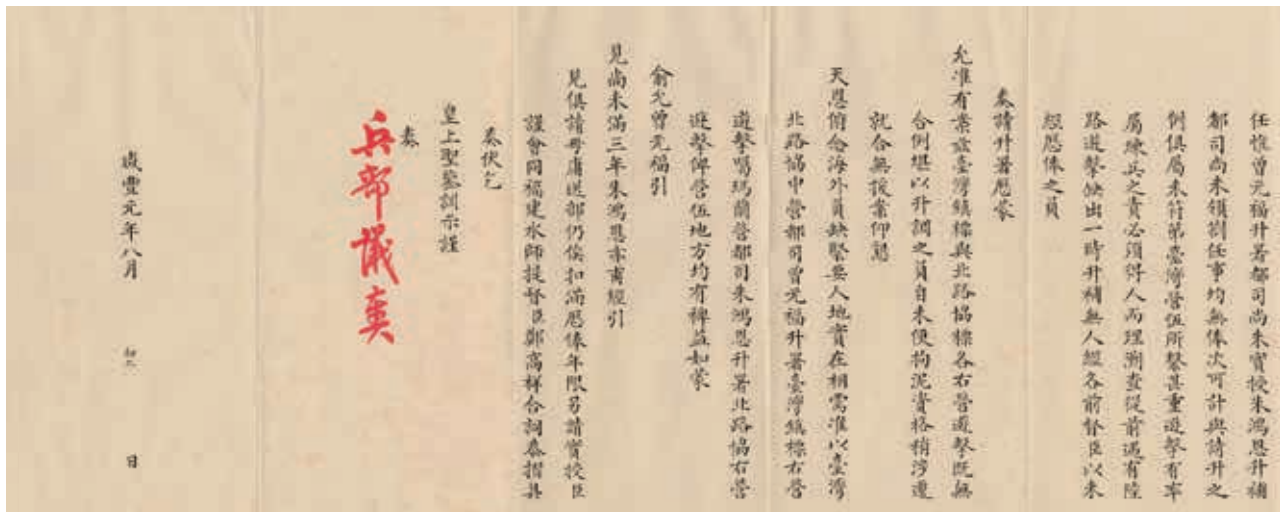 任惟曾元福升署都司尚未實授朱鴻恩升補
都司尚未領劄任事均無俸次可計與請升之
例俱屬未符第臺灣營伍所繫甚重遊擊有率
屬練兵之責必須得人而理溯查從前遇有陸
路遊擊缺出一時升補無人經各前督臣以未
經歷俸之員
奏請升署歷蒙
允准有案茲臺灣鎮標與北路協標各右營遊擊既無
合例堪以升調之員自未便拘泥資格稍涉遷
就合無援案仰懇
天恩俯念海外員缺緊要人地實在相需准以臺灣
北路協中營都司曾元福升署臺灣鎮標右營
遊擊噶瑪蘭營都司朱鴻恩升署北路協右營
遊擊俾營伍地方均有裨益如蒙
俞允曾元福引
見尚未滿三年朱鴻恩亦甫經引
見俱請毋庸送部仍俟扣滿歷俸年限另請實授臣
謹會同福建水師提督臣鄭高祥合詞恭摺具
奏伏乞
皇上聖鑒訓示謹
奏
兵部議奏
咸豐元年八月 初六 日